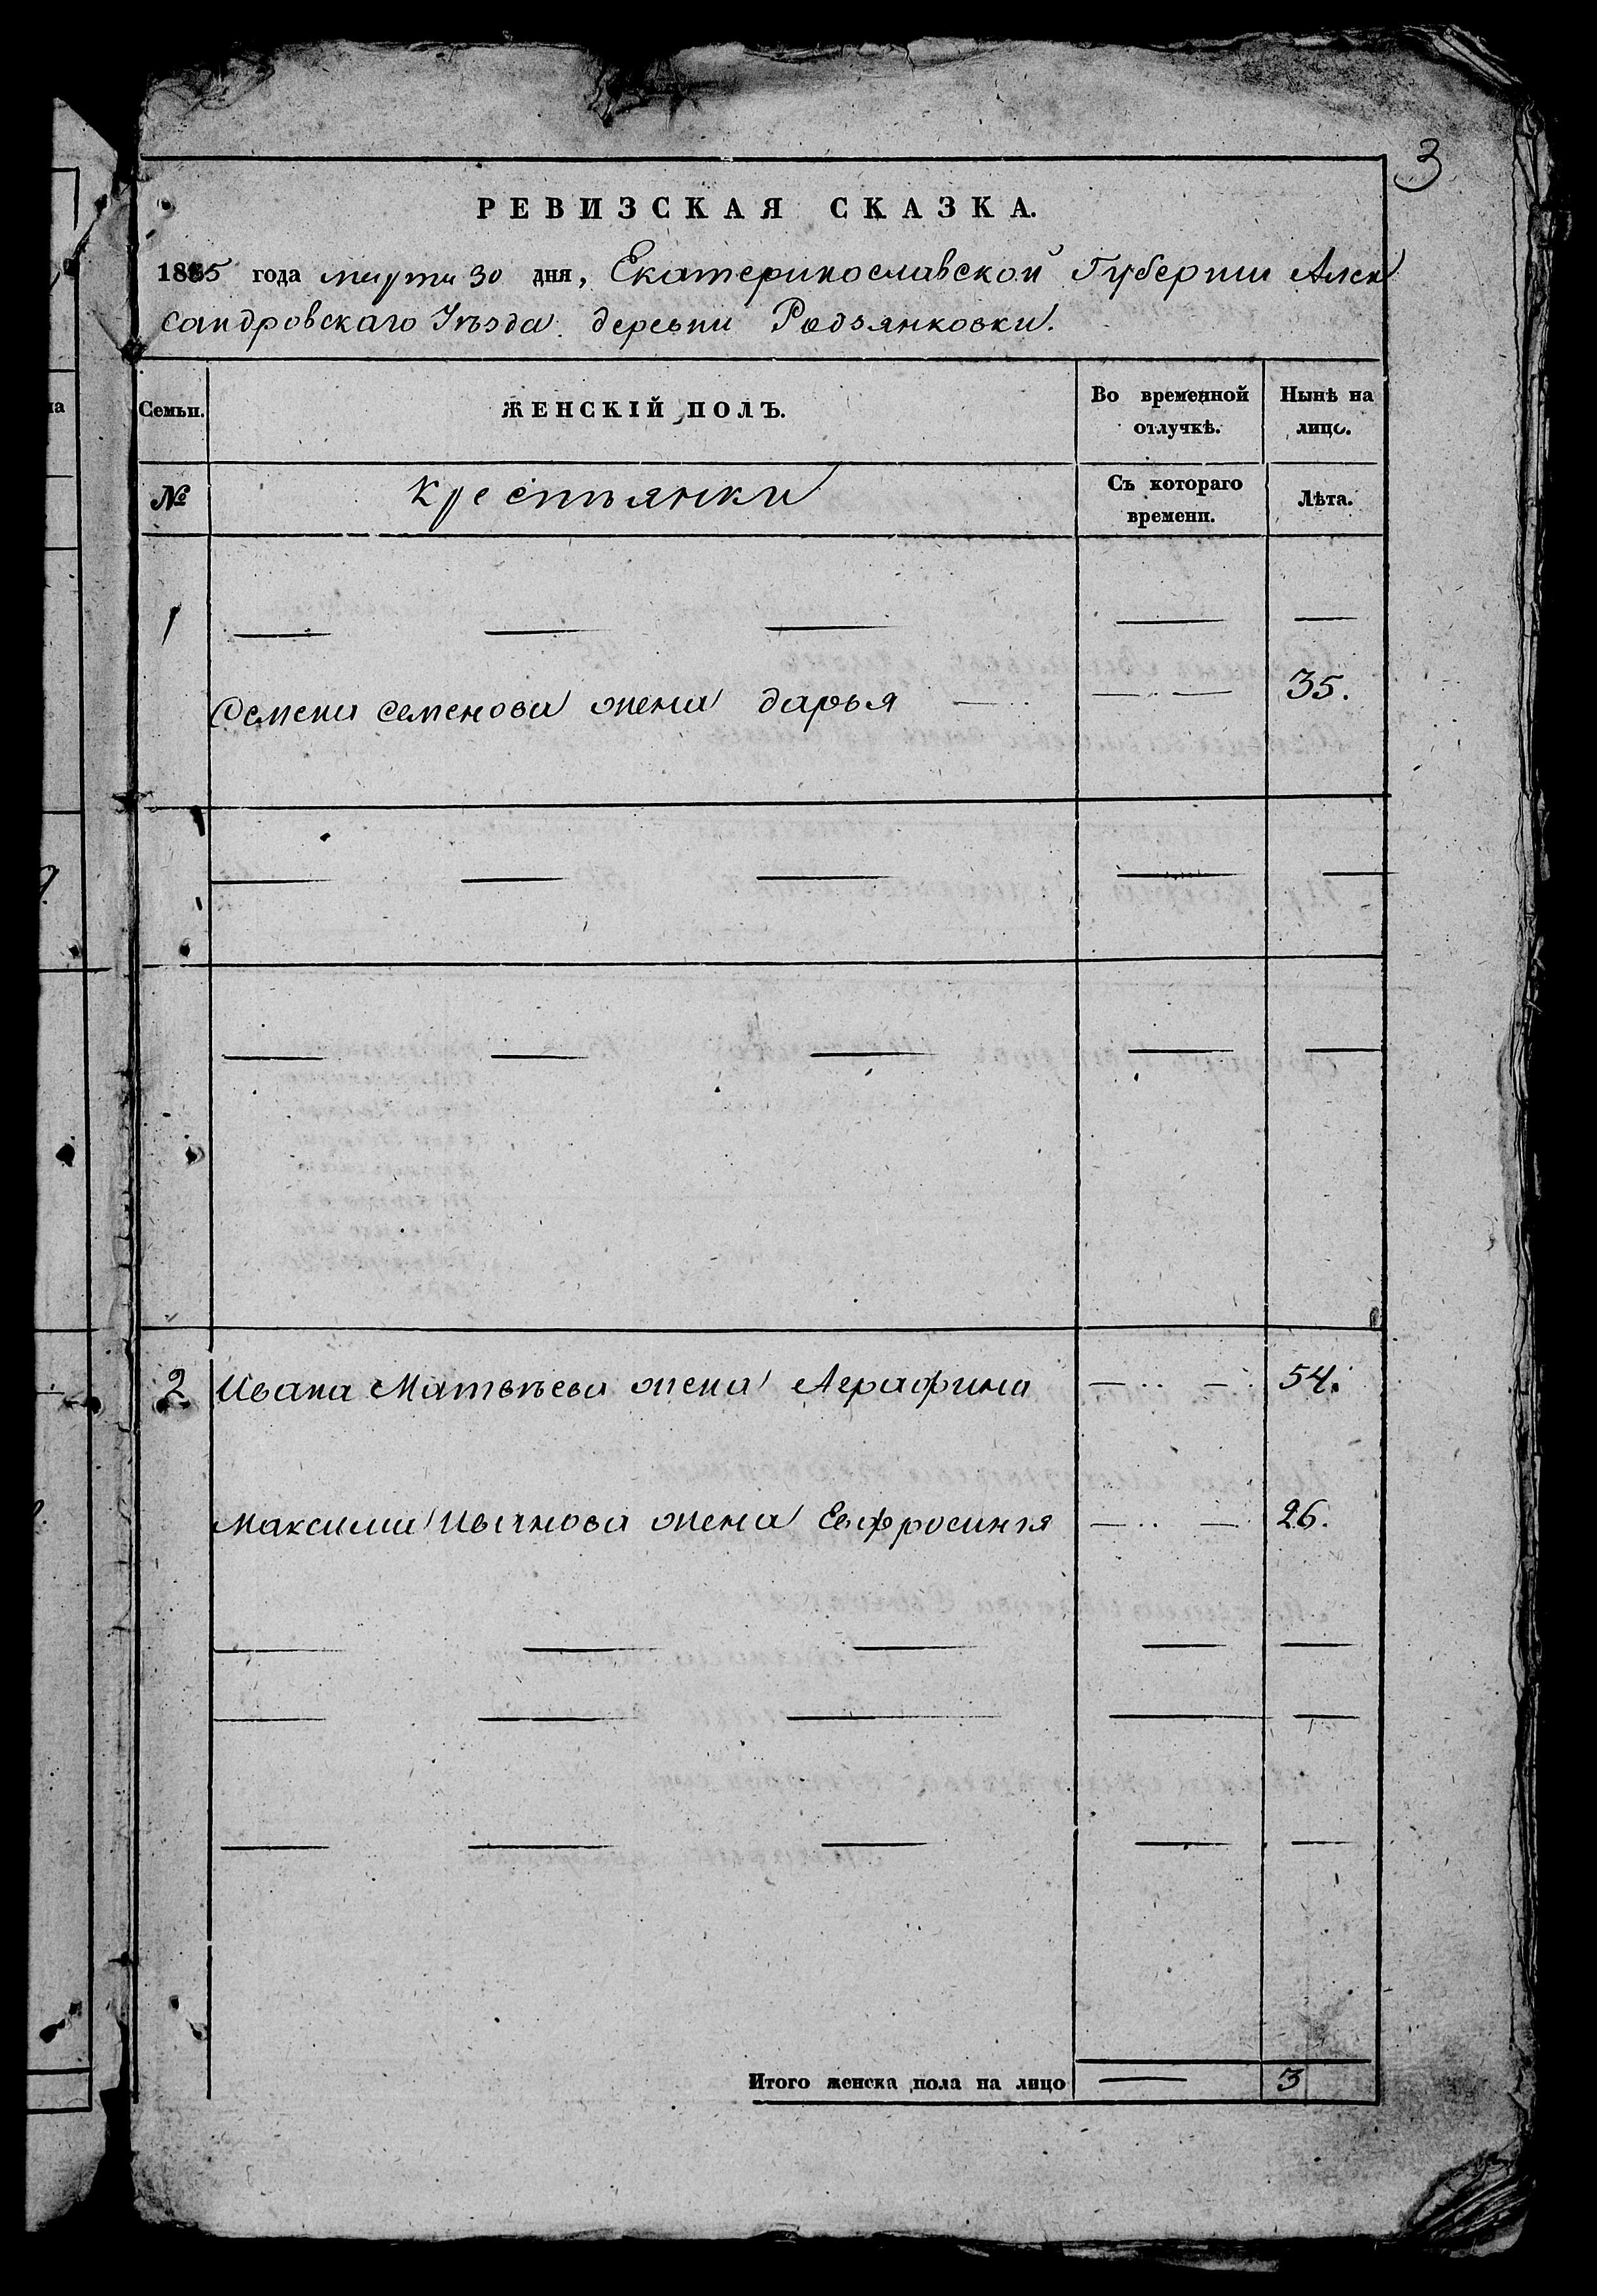 3
РЕВИЗСКАЯ СКАЗКА.
1835 года марта 30 дня, Екатеринославской Губернии Алек
сандровскаго Уѣзда деревни Родзянковки.
Семьи. ЖЕНСКІЙ ПОЛЪ. Во временной отлучкѣ. Нынѣ на лицо.
№ Крестьянки Съ котораго времени. Лѣта.
1
Семена Семенова жена дарья 35.
2 Ивана Матвѣева жена Аграфина 54.
Максима Иванова жена Евфросинья 26.
Итого женска пола на лицо 3